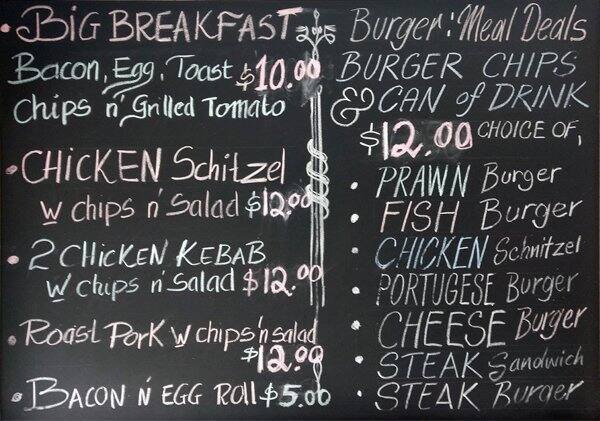 BIG BREAKFAST
Bacon, Egg, Toast $10.00
Chips n' Grilled Tomato
CHICKEN Schitzel
w chips n' Salad $12.00
2 CHICKEN KEBAB
w chips n' Salad $12.00
Roast Pork w chips 'n salad
$12.00
BACON N' EGG ROLL $5.00
Burger: Meal Deals
BURGER CHIPS
& CAN of DRINK
$12.00 CHOICE OF,
PRAWN Burger
FISH Burger
CHICKEN Schnitzel
PORTUGESE Burger
CHEESE Burger
STEAK Sandwich
STEAK Burger